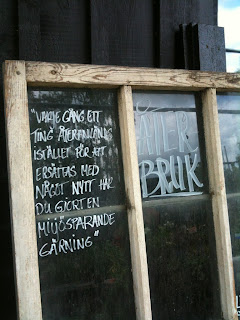 "VARJE GÅNG ETT
TING ÅTERANVÄNDS
ISTÄLLET FÖR ATT
ERSÄTTAS MED
NÅGOT NYTT HAR
DU GJORT EN
MILJÖSPARANDE
GÄRNING"
ÅTER
BRUK